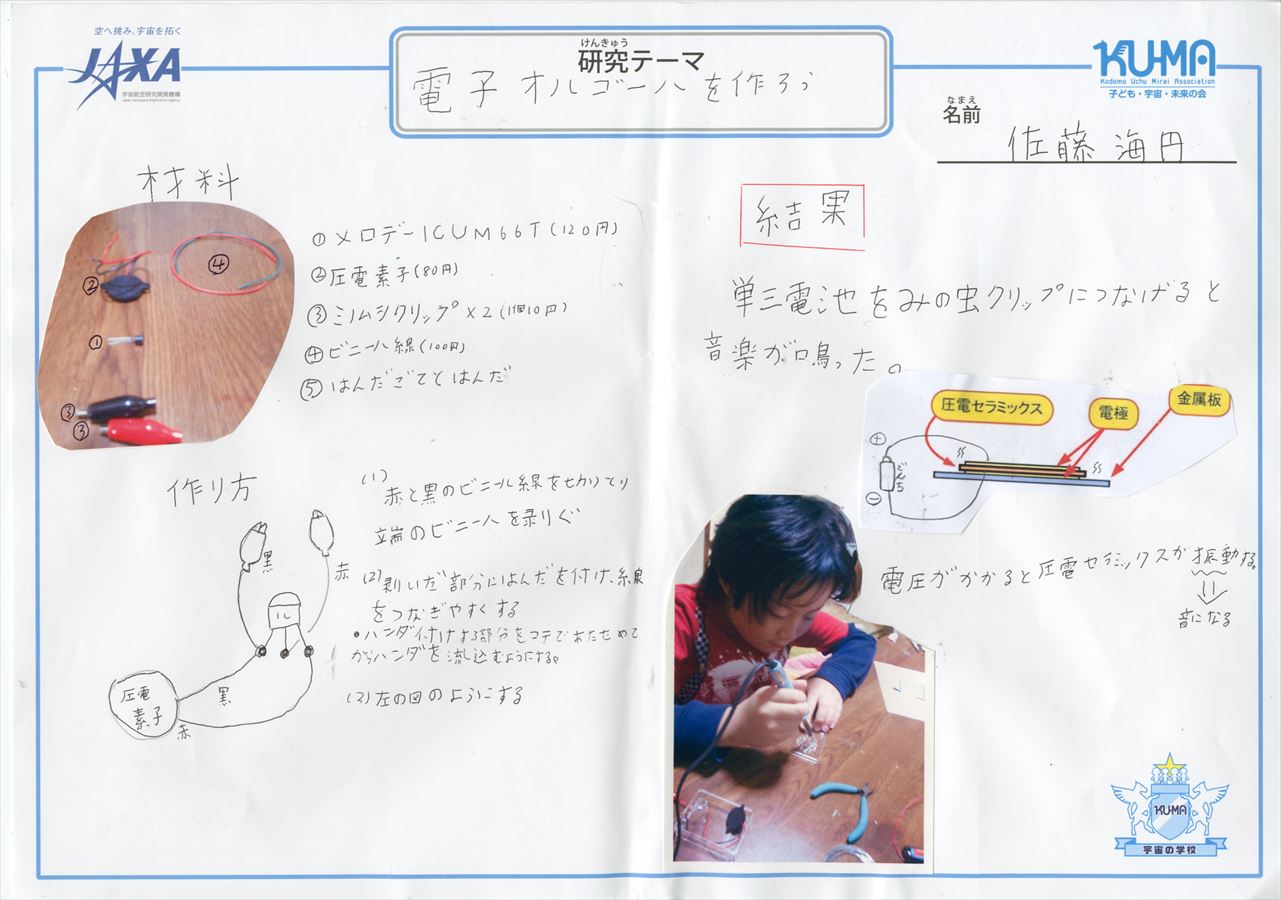 空へ挑み、宇宙を拓く
JAXA
宇宙航空研究開発機構
Japan Aerospace Exploration Agency
けんきゅう
研究テーマ
電子オルゴールを作ろう
KU-MA
Kodomo Uchu Mirai Association
子ども・宇宙・未来の会
なまえ
名前
佐藤海円
材料
④
②
①
③
③
①メロデーICUM66T(120円)
②圧電素子(80円)
③ミノムシクリップ×2(1個10円)
④ビニール線(100円)
⑤はんだごてとはんだ
作り方
黒
赤
IC
圧電
素子
黒
赤
(1)
赤と黒のビニール線を切りとり
端のビニールを剥りぐ
(2)剥いだ部分にはんだを付け、線
をつなぎやすくする
•ハンダ付けする部分をコテであたためて
からハンダを流し込むようにする。
(3)左の図のようにする
結果
単三電池をみの虫クリップにつなげると
音楽が鳴った。
圧電セラミックス
電極
金属板
+
でんち
−
電圧がかかると圧電セラミックスが振動する。
音になる
KU-MA
宇宙の学校